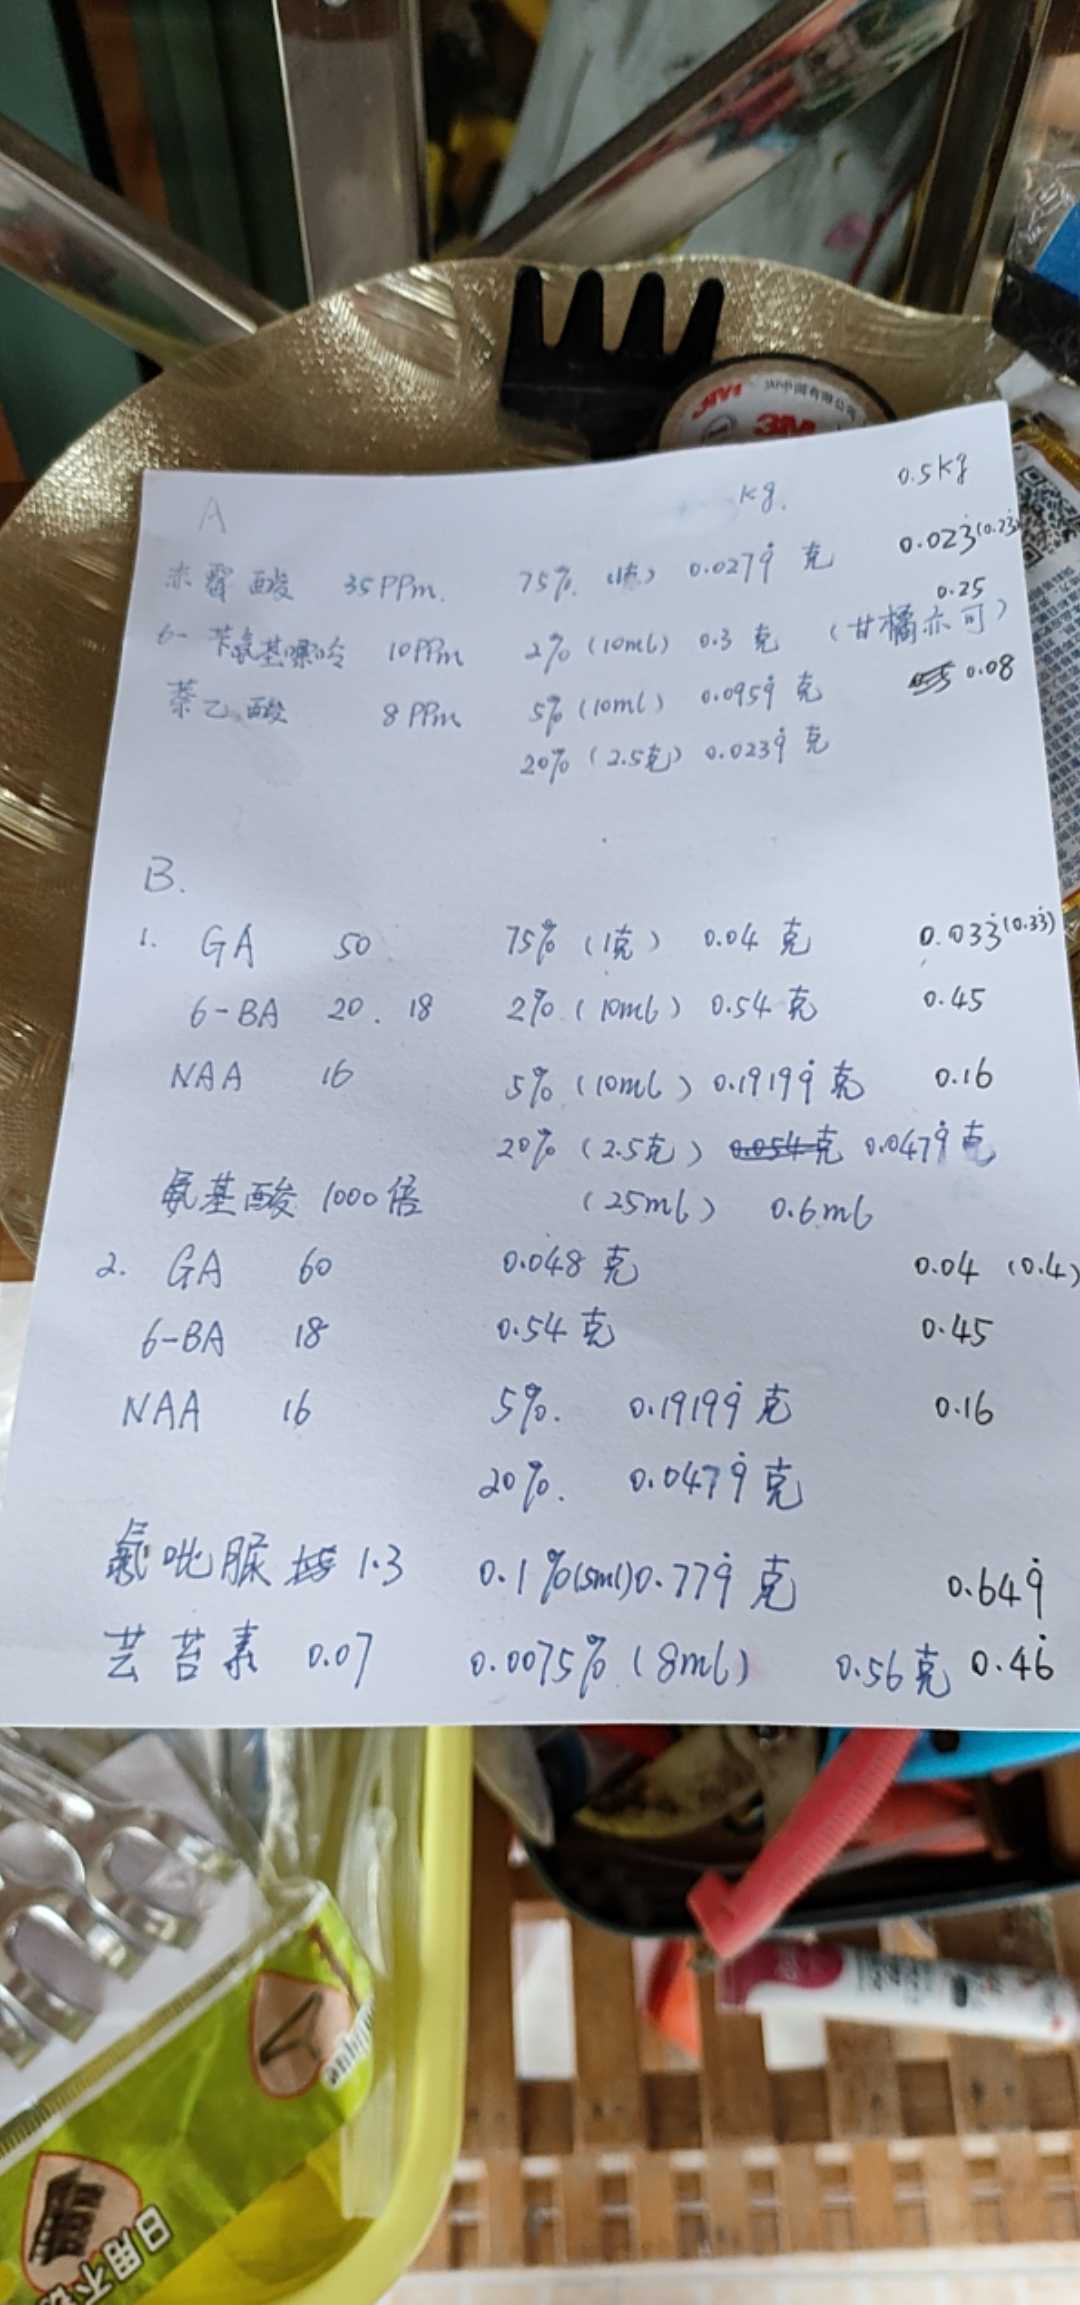 3M 3M中国有限公司
3M
A kg. 0.5kg
赤霉酸 35PPm. 75%. (1克) 0.0279̇ 克 0.023̇(0.23̇)
6-苄氨基嘌呤 10PPm 2% (10ml) 0.3 克 (甘橘亦可) 0.25
萘乙酸 8PPm 5% (10ml) 0.0959̇ 克 0.08
20% (2.5克) 0.0239̇ 克
B.
1. GA 50 75% (1克) 0.04 克 0.033̇(0.33̇)
6-BA 20. 18 2% (10ml) 0.54 克 0.45
NAA 16 5% (10ml) 0.19199̇ 克 0.16
20% (2.5克) 0.054克 0.0479̇ 克
氨基酸 1000倍 (25ml) 0.6ml
2. GA 60 0.048 克 0.04 (0.4)
6-BA 18 0.54 克 0.45
NAA 16 5%. 0.19199̇ 克 0.16
20%. 0.0479̇ 克
氯吡脲 1.3 0.1%(5ml)0.779̇ 克 0.649̇
芸苔素 0.07 0.0075% (8ml) 0.56克 0.46̇
日用不